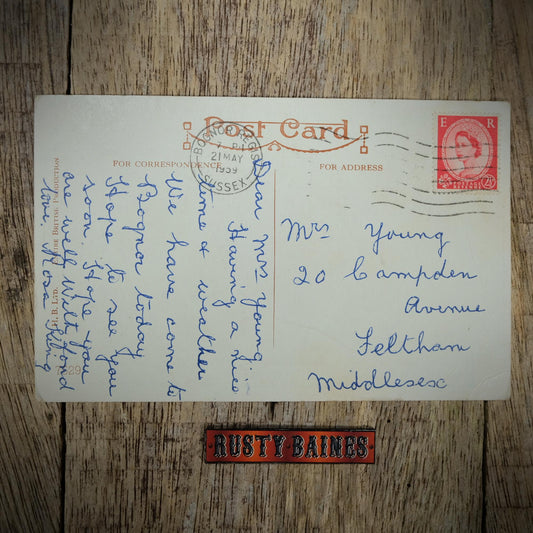 Post Card
FOR CORRESPONDENCE
FOR ADDRESS
BOGNOR REGIS
7-PM
21 MAY
1959
SUSSEX
E R
2½
Dear Mrs Young
Having a nice
time & weather
We have come to
Bognor today
Hope to see you
soon. Hope you
are well with fond
love. Rosa King
Mrs Young
20 Campden
Avenue
Feltham
Middlesex
H.B. LTD.
BRITISH PRODUCTION
RUSTY BAINES